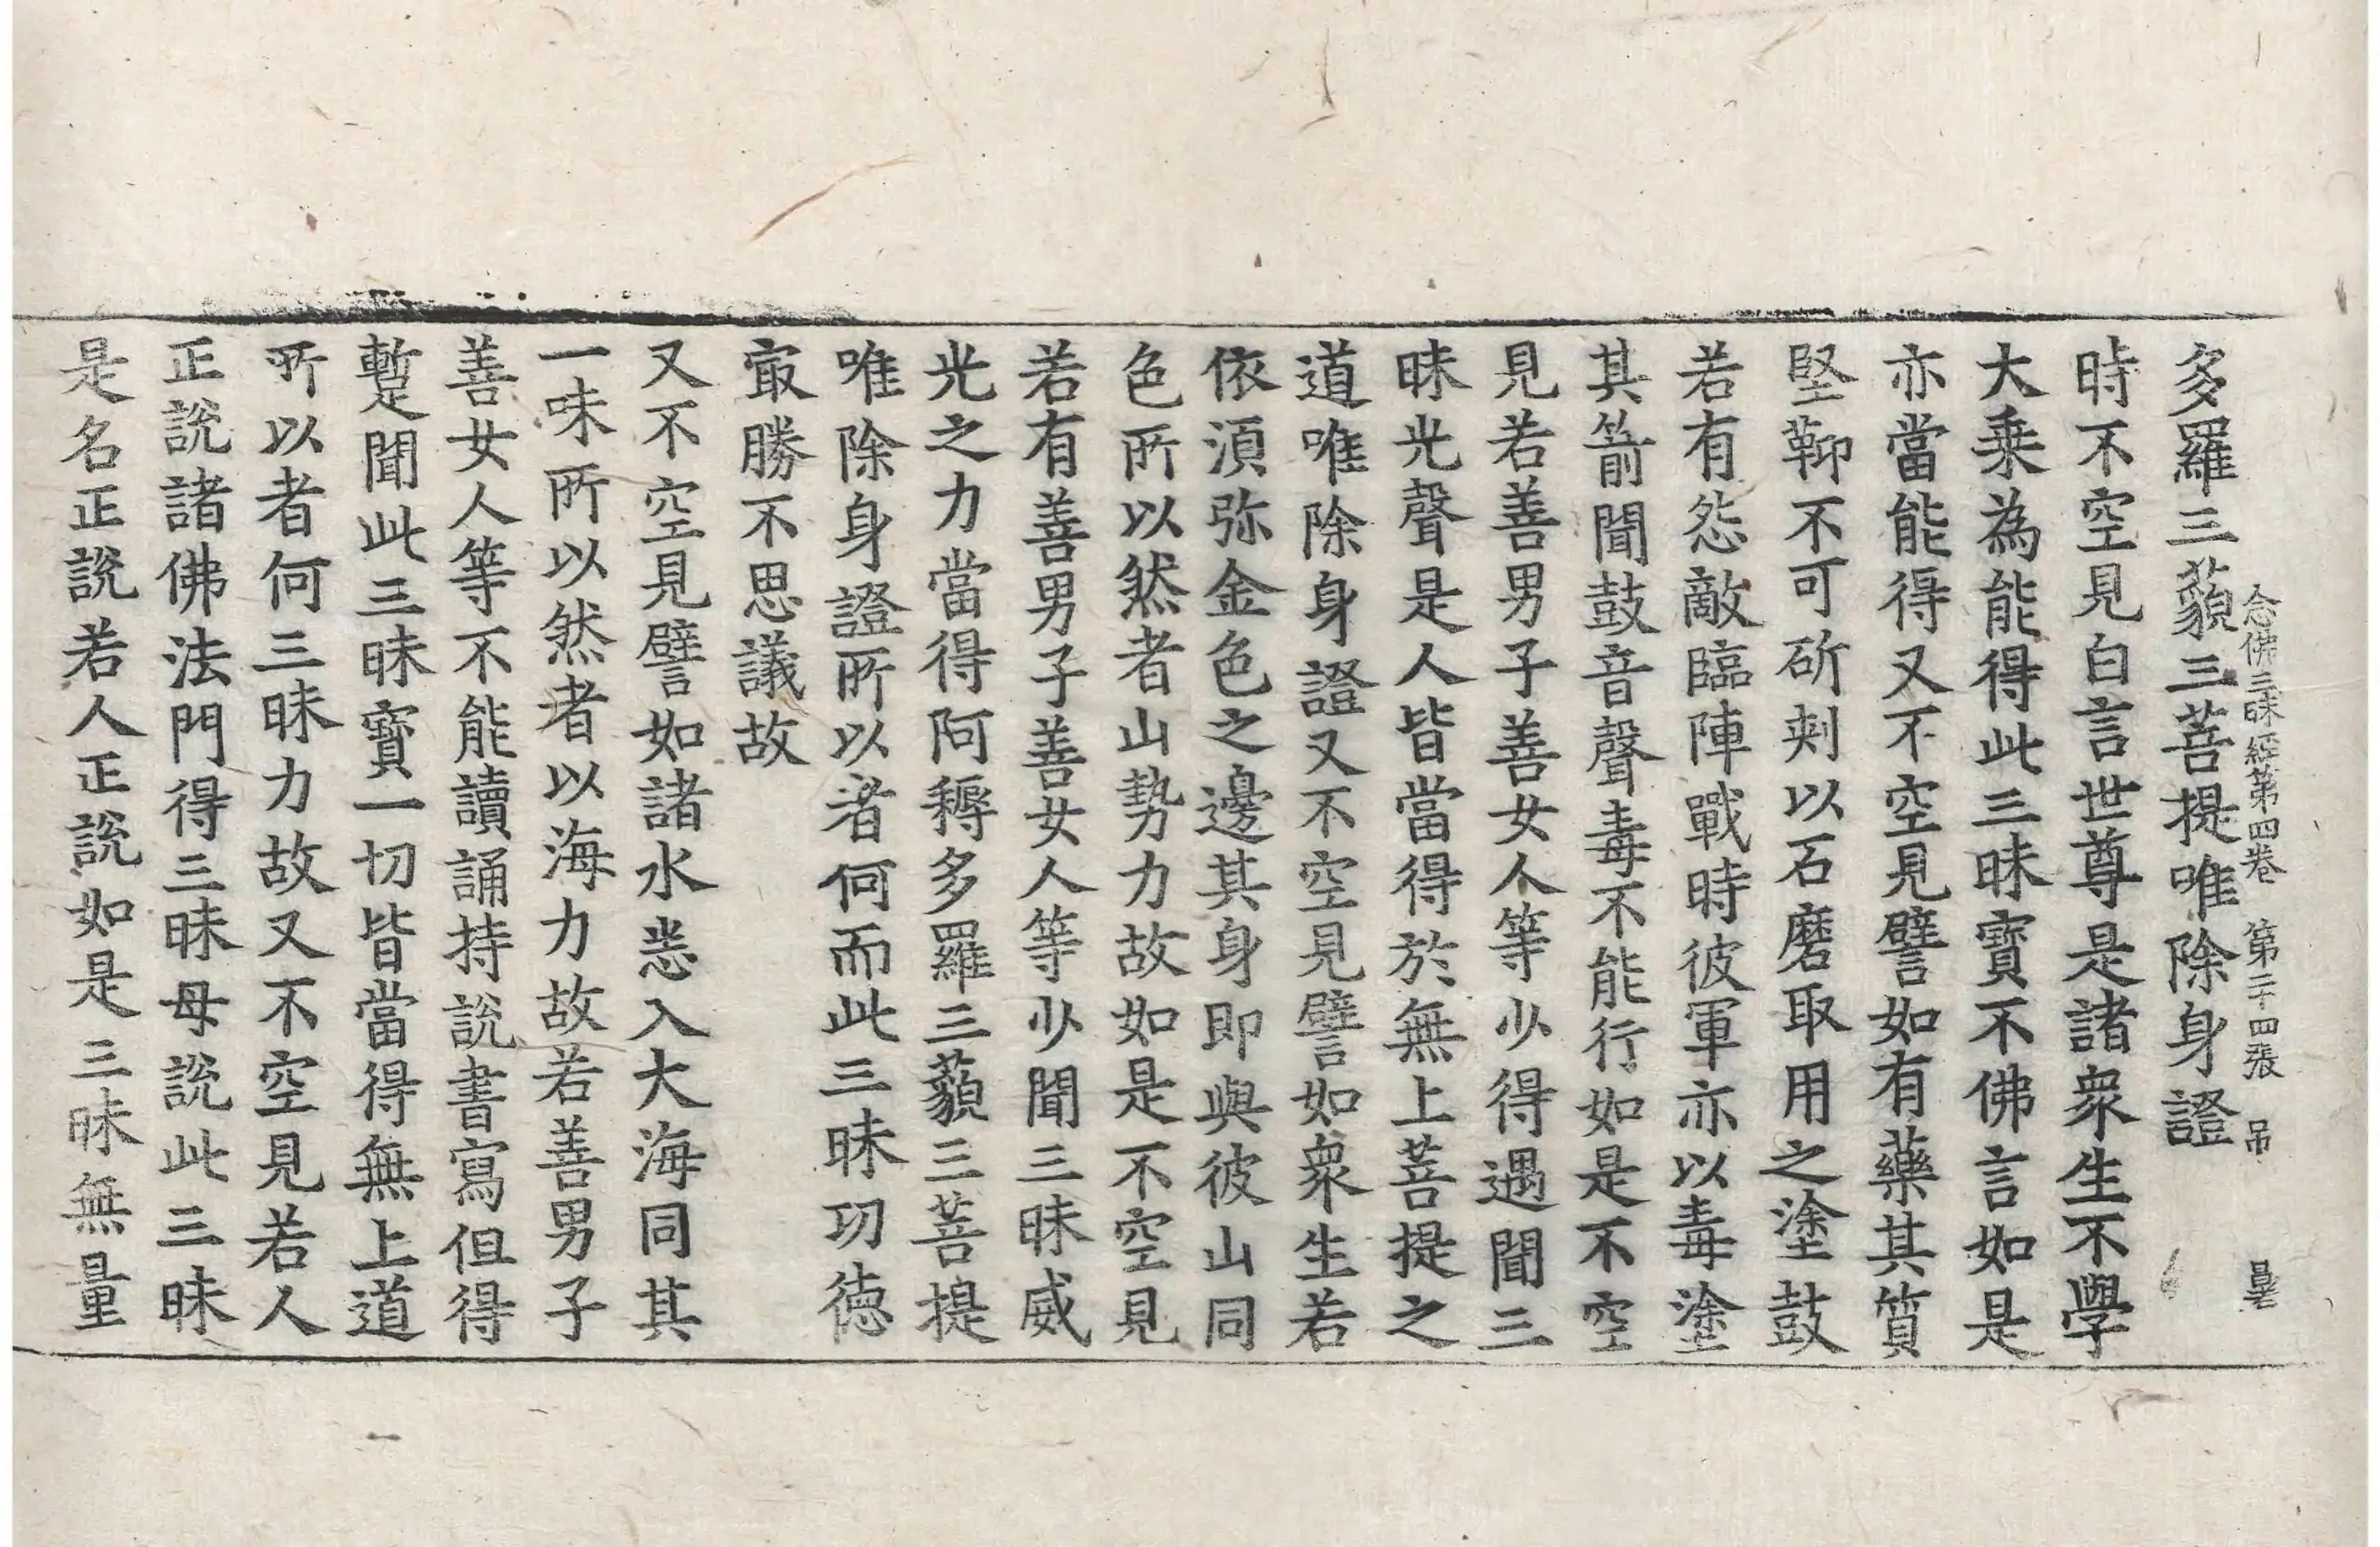 念佛三昧經第四卷 第二十四張 吊
多羅三藐三菩提唯除身證
時不空見白言世尊是諸衆生不學
大乗為能得此三昧寳不佛言如是
亦當能得又不空見譬如有藥其質
堅䩕不可斫刾以石磨取用之塗鼓
若有怨敵臨陣戰時彼軍亦以毒塗
其箭聞鼓音聲毒不能行如是不空
見若善男子善女人等少得遇聞三
昧光聲是人皆當得於無上菩提之
道唯除身證又不空見譬如衆生若
依湏弥金色之邊其身即與彼山同
色所以然者山勢力故如是不空見
若有善男子善女人等少聞三昧威
光之力當得阿耨多羅三藐三菩提
唯除身證所以者何而此三昧功徳
㝡勝不思議故
又不空見譬如諸水悉入大海同其
一味所以然者以海力故若善男子
善女人等不能讀誦持說書寫但得
蹔聞此三昧寳一切皆當得無上道
所以者何三昧力故又不空見若人
正說諸佛法門得三昧母說此三昧
是名正說若人正說如是三昧無量